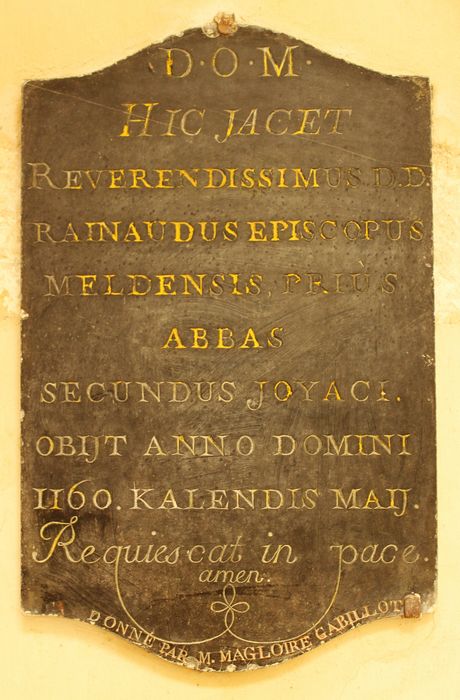 D·O·M·
HIC JACET
REVERENDISSIMUS D.D.
RAINAUDUS EPISCOPUS
MELDENSIS, PRIÙS
ABBAS
SECUNDUS JOYACI.
OBIJT ANNO DOMINI
1160. KALENDIS MAIJ.
Requiescat in pace.
amen.
DONNÉ PAR M. MAGLOIRE GABILLOT